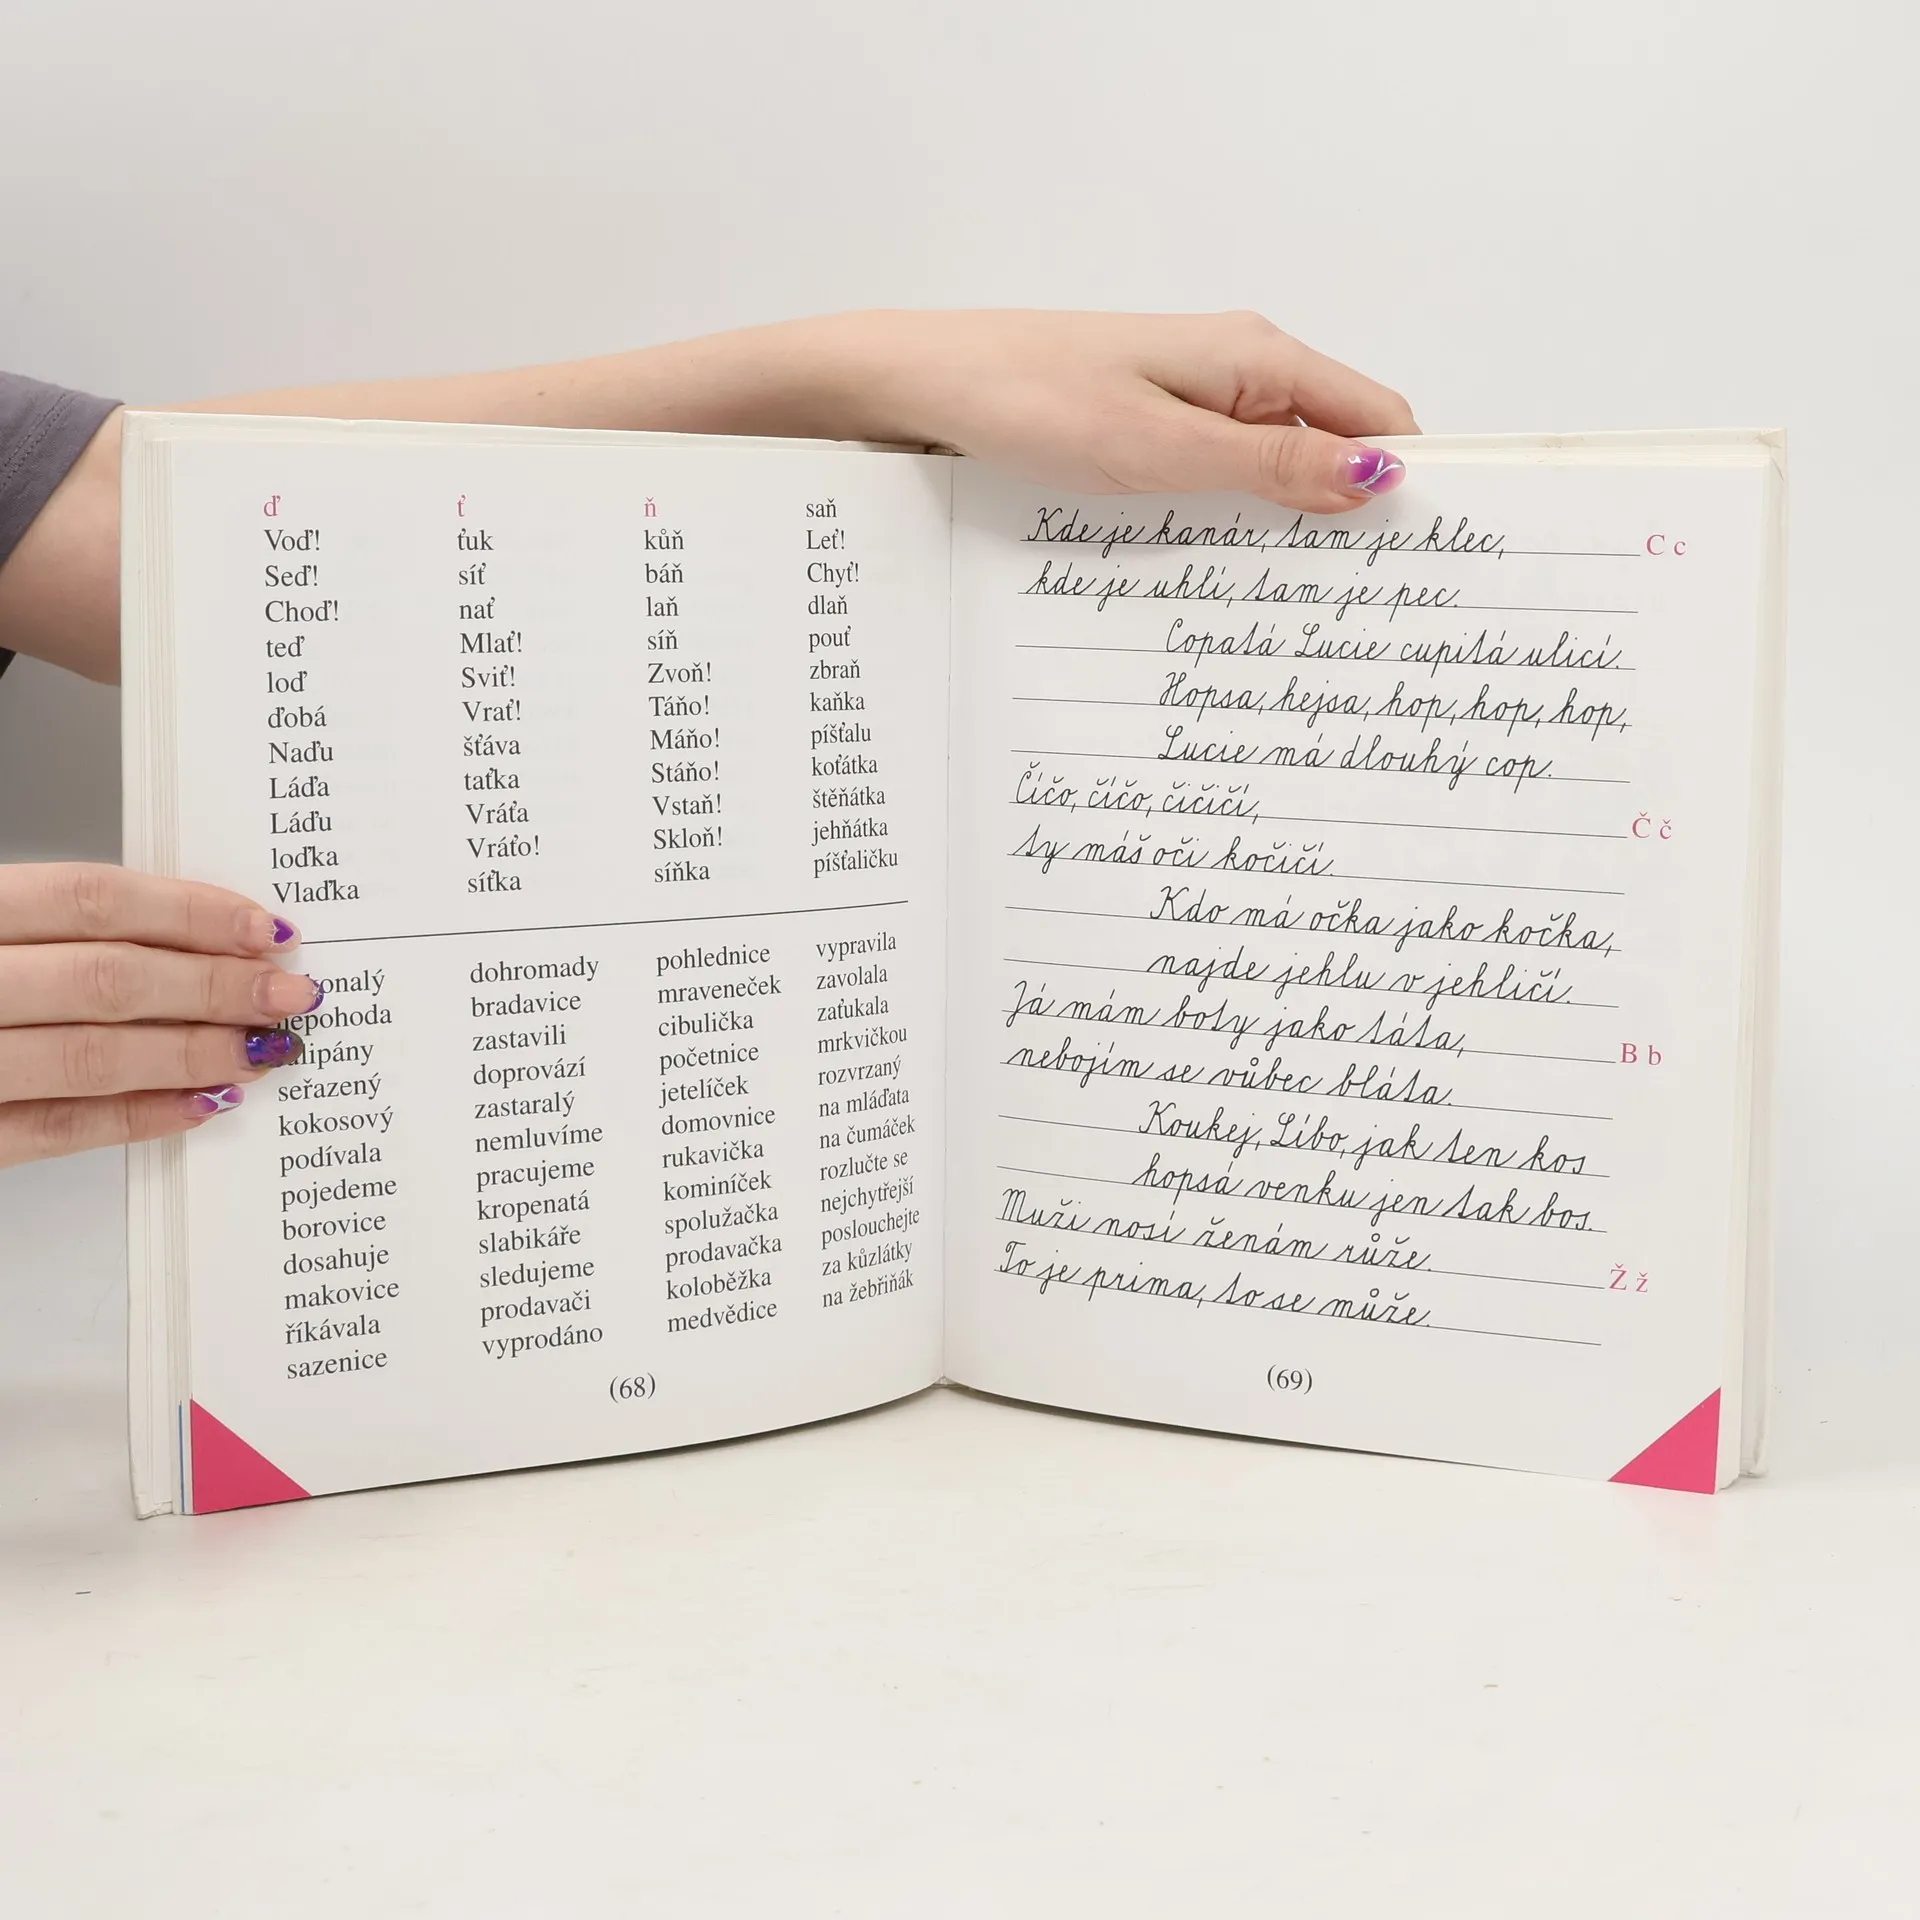 ď
Voď!
Seď!
Choď!
teď
loď
ďobá
Naďu
Láďa
Láďu
loďka
Vlaďka
ť
ťuk
síť
nať
Mlať!
Sviť!
Vrať!
šťáva
taťka
Vráťa
Vráťo!
síťka
ň
kůň
báň
laň
síň
Zvoň!
Táňo!
Máňo!
Stáňo!
Vstaň!
Skloň!
síňka
saň
Leť!
Chyť!
dlaň
pouť
zbraň
kaňka
píšťalu
koťátka
štěňátka
jehňátka
píšťaličku
nepohoda
seřazený
kokosový
podívala
pojedeme
borovice
dosahuje
makovice
říkávala
sazenice
dohromady
bradavice
zastavili
doprovází
zastaralý
nemluvíme
pracujeme
kropenatá
slabikáře
sledujeme
prodavači
vyprodáno
pohlednice
mraveneček
cibulička
početnice
jetelíček
domovnice
rukavička
kominíček
spolužačka
prodavačka
koloběžka
medvědice
vypravila
zavolala
zaťukala
mrkvičkou
rozvrzaný
na mláďata
na čumáček
rozlučte se
nejchytřejší
poslouchejte
za kůzlátky
na žebřiňák
(68)
Kde je kanár, tam je klec, C c
kde je uhlí, tam je pec.
Copatá Lucie cupitá ulicí.
Hopsa, hejsa, hop, hop, hop,
Lucie má dlouhý cop.
Číčo, číčo, čičičí, Č č
ty máš oči kočičí.
Kdo má očka jako kočka,
najde jehlu v jehličí.
Já mám boty jako táta, B b
nebojím se vůbec bláta.
Koukej, Líbo, jak ten kos
hopsá venku jen tak bos.
Muži nosí ženám růže. Ž ž
To je prima, to se může.
(69)